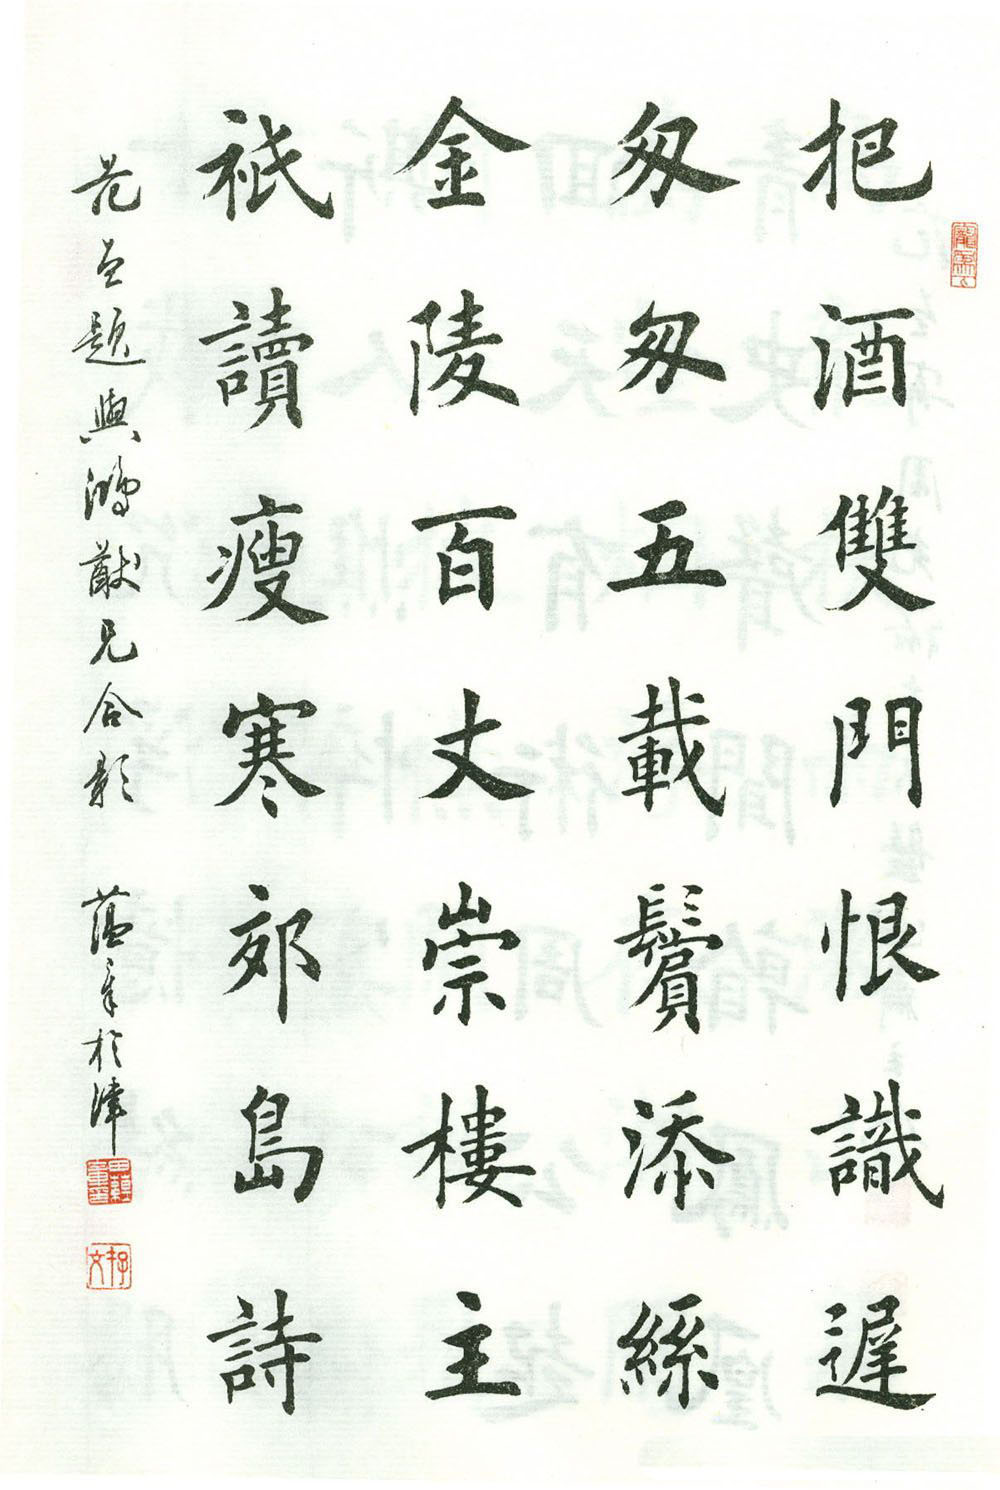 把酒雙門恨識遲
匆匆五載鬢添絲
金陵百丈崇樓主
祇讀瘦寒郊島詩
題與鴻猷兄合影 蘊章於津
田蘊章印